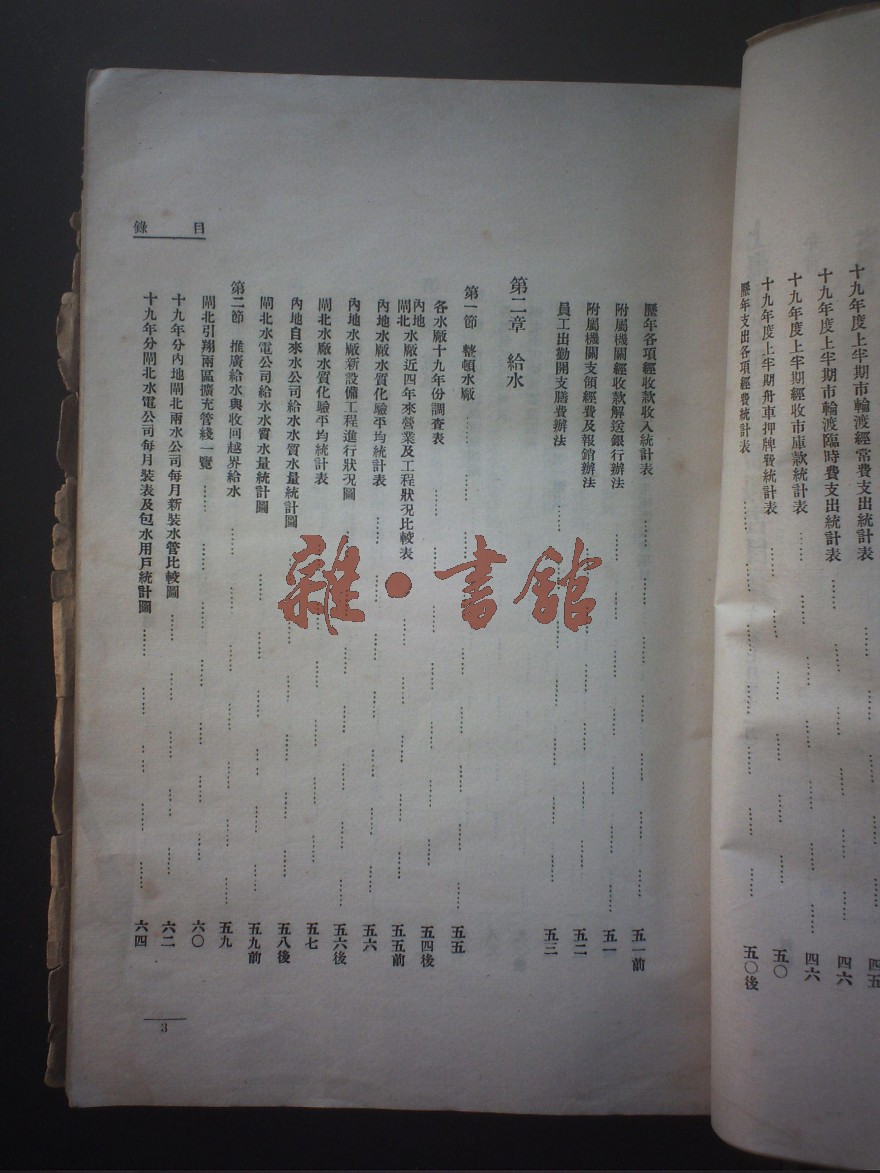 十九年度上半期市輪渡經常費支出統計表 四五
十九年度上半期市輪渡臨時費支出統計表 四六
十九年度上半期經收市庫款統計表 四六
十九年度上半期舟車押牌費統計表 五〇
歷年支出各項經費統計表 五〇後
目錄
歷年各項經收款收入統計表 五一前
附屬機關經收款解送銀行辦法 五一
附屬機關支領經費及報銷辦法 五二
員工出勤開支膳費辦法 五三
第二章 給水
第一節 整頓水廠 五五
各水廠十九年份調查表 五四後
內地閘北水廠近四年來營業及工程狀況比較表 五五前
內地水廠水質化驗平均統計表 五六
內地水廠新設備工程進行狀況圖 五六後
閘北水廠水質化驗平均統計表 五七
內地自來水公司給水水質水量統計圖 五八後
閘北水電公司給水水質水量統計圖 五九前
第二節 推廣給水與收回越界給水 五九
閘北引翔兩區擴充管綫一覽 六〇
十九年分內地閘北兩水公司每月新裝水管比較圖 六二
十九年分閘北水電公司每月裝表及包水用戶統計圖 六四
3
雜·書館